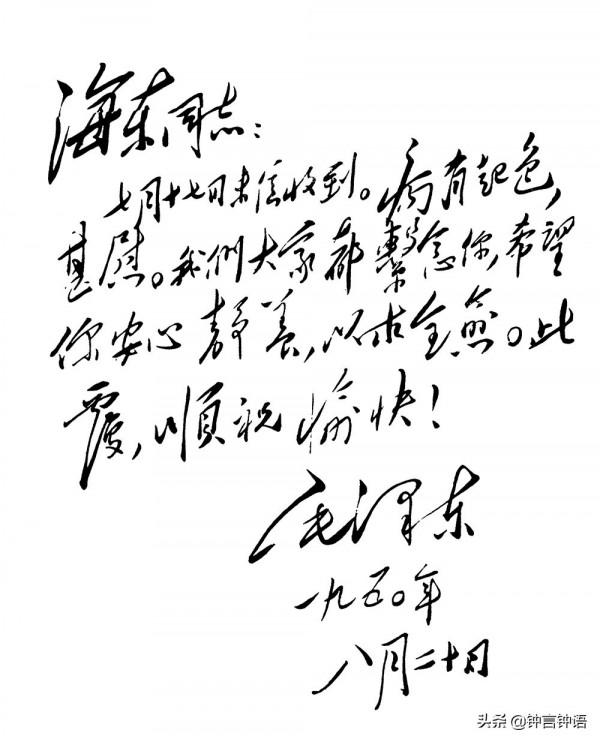 海东同志：
七月十七日来信收到。病有起色，
甚慰。我們大家都繫念你，希望
你安心静養，以求全愈。此
覆，順祝愉快！
毛泽东
一九五〇年
八月二十日
头条 @钟言钟语